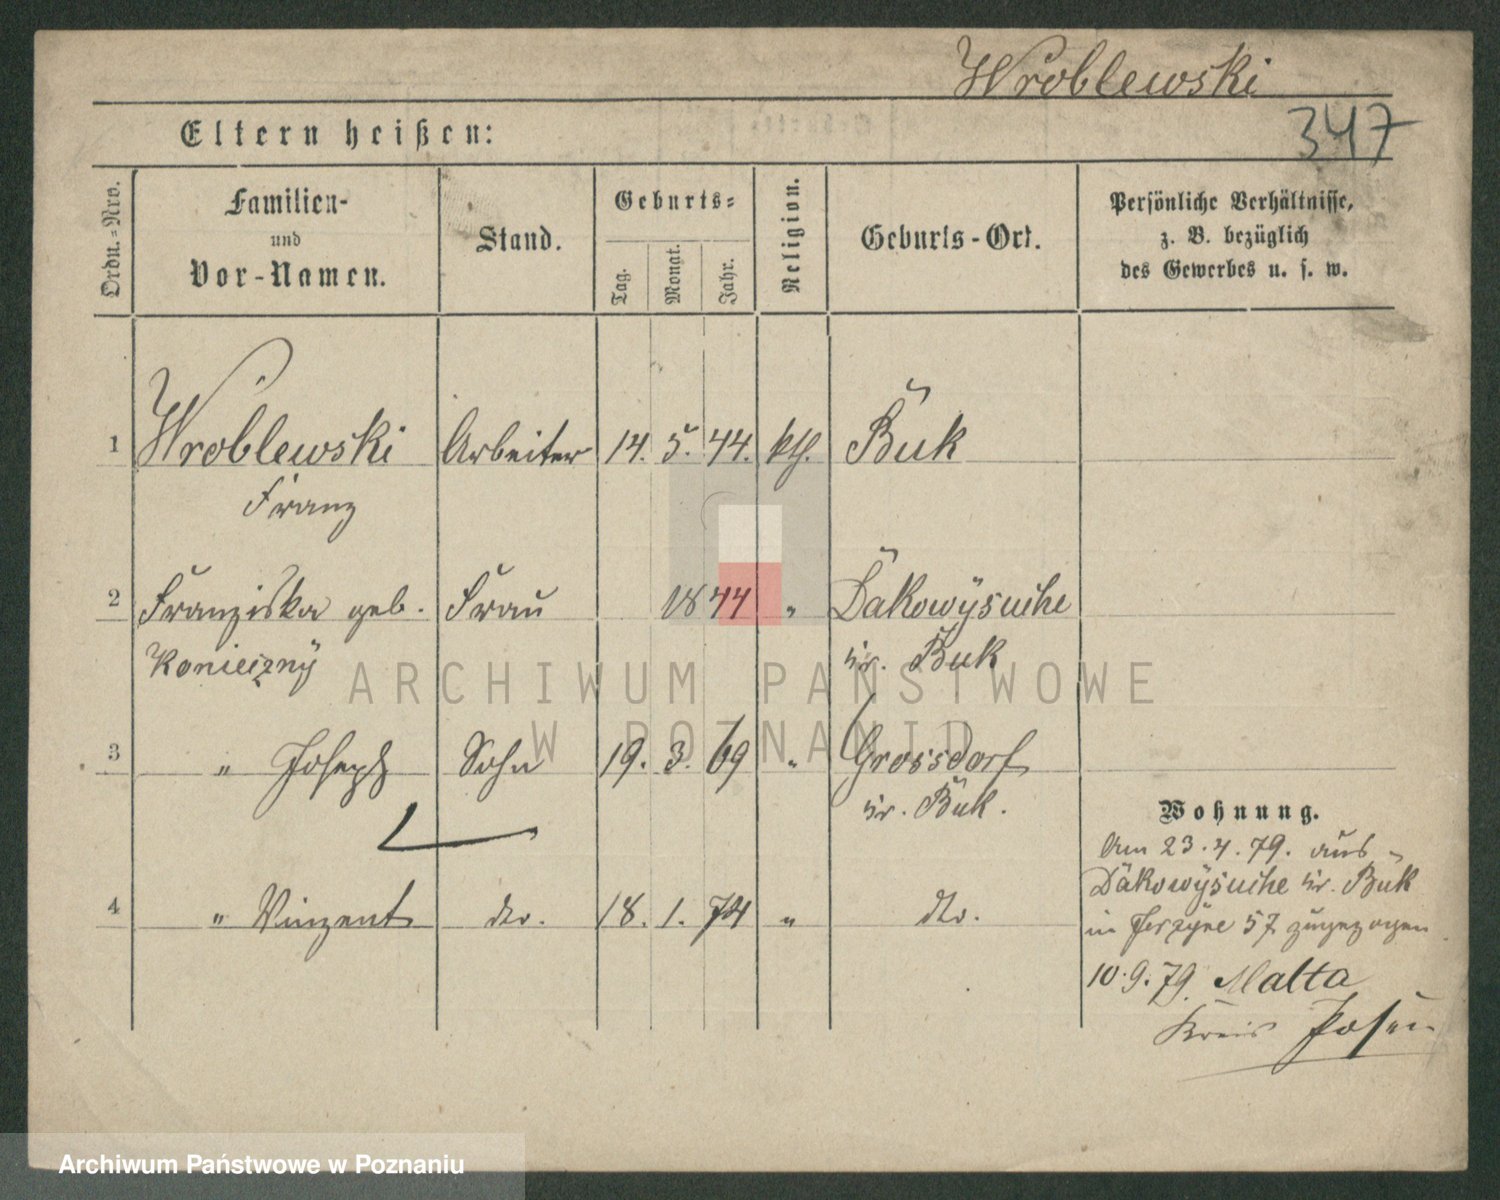 Wroblewski
347
Eltern heißen:
Ordn.-Nro.
Familien-
und
Vor-Namen.
Stand.
Geburts-
Tag.
Monat.
Jahr.
Religion.
Geburts-Ort.
Persönliche Verhältnisse,
z. B. bezüglich
des Gewerbes u. s. w.
1 Wroblewski Arbeiter 14. 5. 44. kth. Buk
Franz
2 Franziska geb. Frau 1844 " Dakowysuche
Konieczny Kr. Buk
3 " Joseph Sohn 19. 3. 69 " Grossdorf
Kr. Buk.
4 " Vinzent dto. 18. 1. 74 " dto.
Wohnung.
Am 23.4.79. aus
Dakowysuche Kr. Buk
in Jerzyce 57 zugezogen
10.9.79. Malta
Kreis Posen
ARCHIWUM PAŃSTWOWE
W POZNANIU
Archiwum Państwowe w Poznaniu